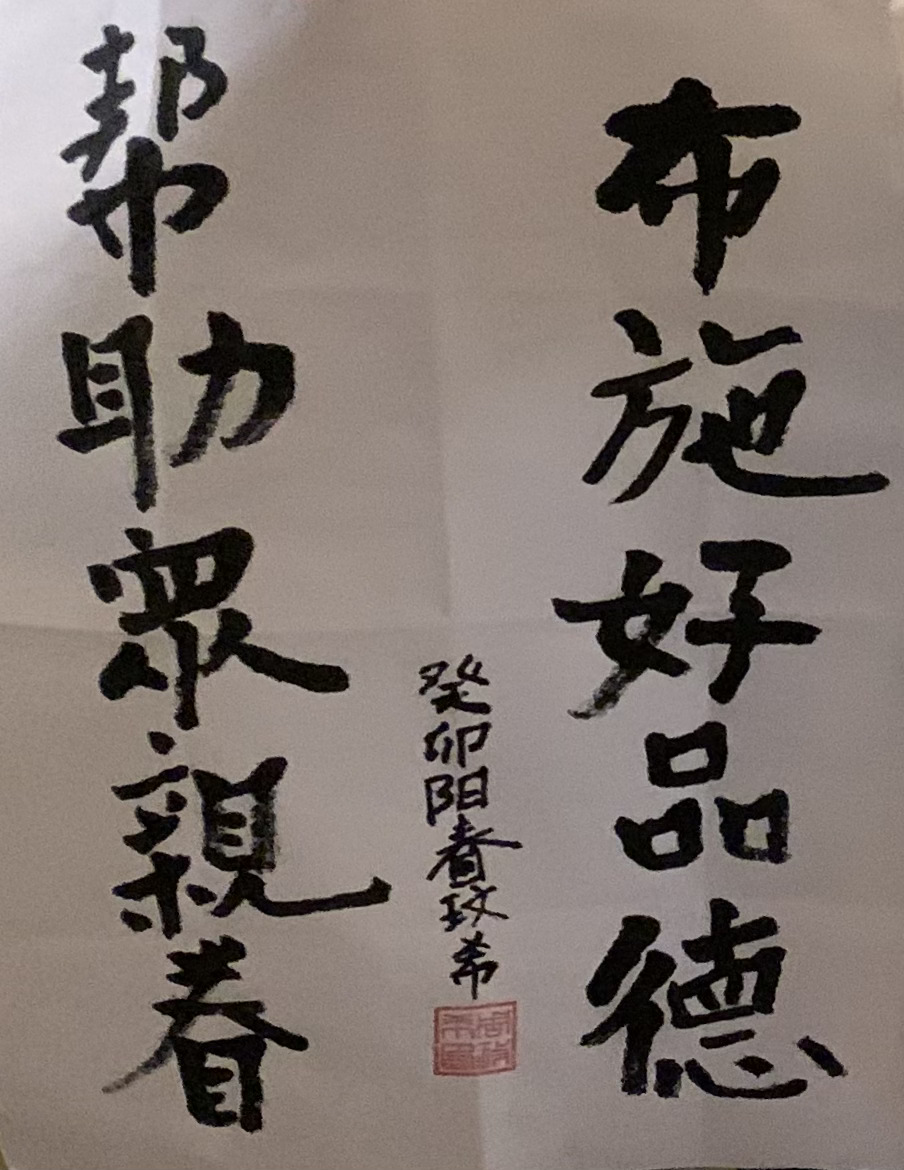 布施好品德
帮助眾親眷
癸卯阳春玟希